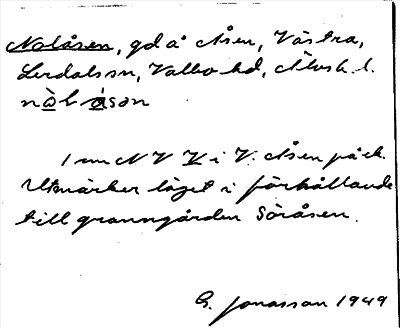 Nolåsen, gd å Åsen, Västra,
Lerdals sn, Valbo hd, Älvsb. l.
nòlåsən
1 mm N V V i V. Åsen på ek.
Utmärker läget i förhållande
till granngården Söråsen.
G. Jonasson 1949